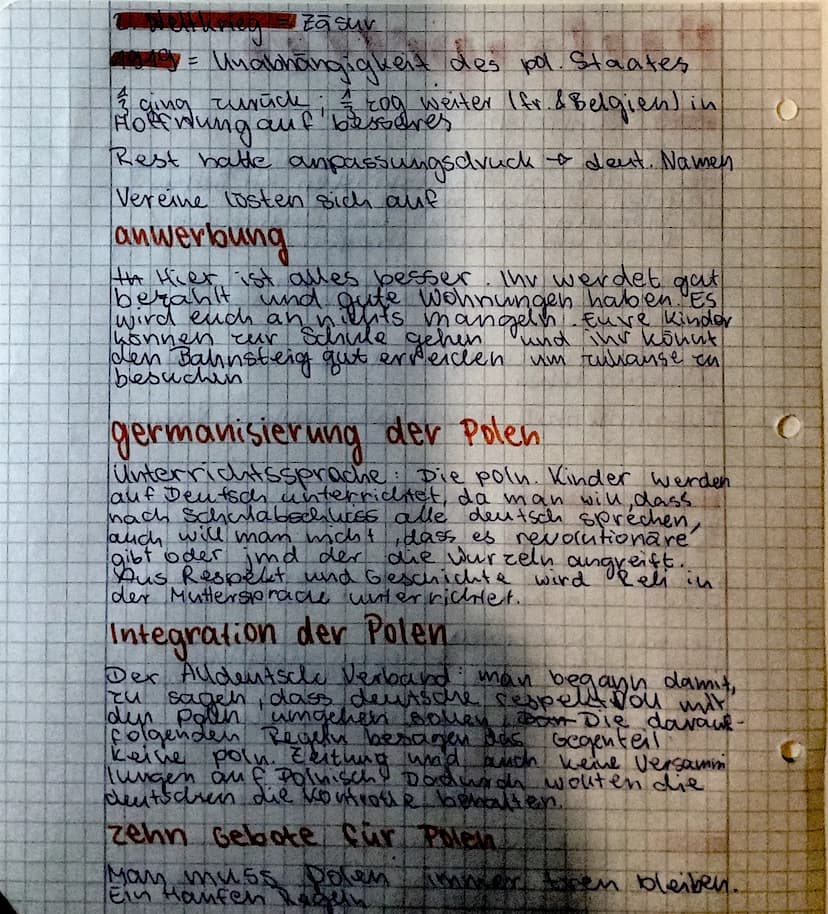 Weltkrieg = Zäsur
1919 = Unabhängigkeit des pol. Staates
1/3 ging zurück; 1/3 zog weiter (fr. & Belgien) in
Hoffnung auf besseres
Rest hatte anpassungsdruck → deut. Namen
Vereine lösten sich auf
anwerbung
Hier ist alles besser. Ihr werdet gut
bezahlt und gute Wohnungen haben. Es
wird euch an nichts mangeln! Eure Kinder
können zur Schule gehen und ihr könnt
den Bahnsteig gut erreichen um zuhause zu
besuchen
germanisierung der Polen
Unterrichtssprache: Die poln. Kinder werden
auf Deutsch unterrichtet, da man will, dass
nach Schulabschluss alle deutsch sprechen,
auch will man nicht, dass es revolutionäre
gibt oder jmd der die Wurzeln angreift.
Aus Respekt und Geschichte wird Reli in
der Muttersprache unterrichtet.
Integration der Polen
Der Alldeutsche Verband: man begann damit,
zu sagen, dass deutsche respektvoll mit
den Polen umgehen sollen. Die darauf-
folgenden Regeln besagen das Gegenteil
Keine poln. Zeitung und auch keine Versamm
lungen auf Polnisch! Dadurch wollten die
deutschen die Kontrolle behalten.
zehn Gebote für Polen
Man muss Polen immer bleiben.
Ein Haufen Regeln